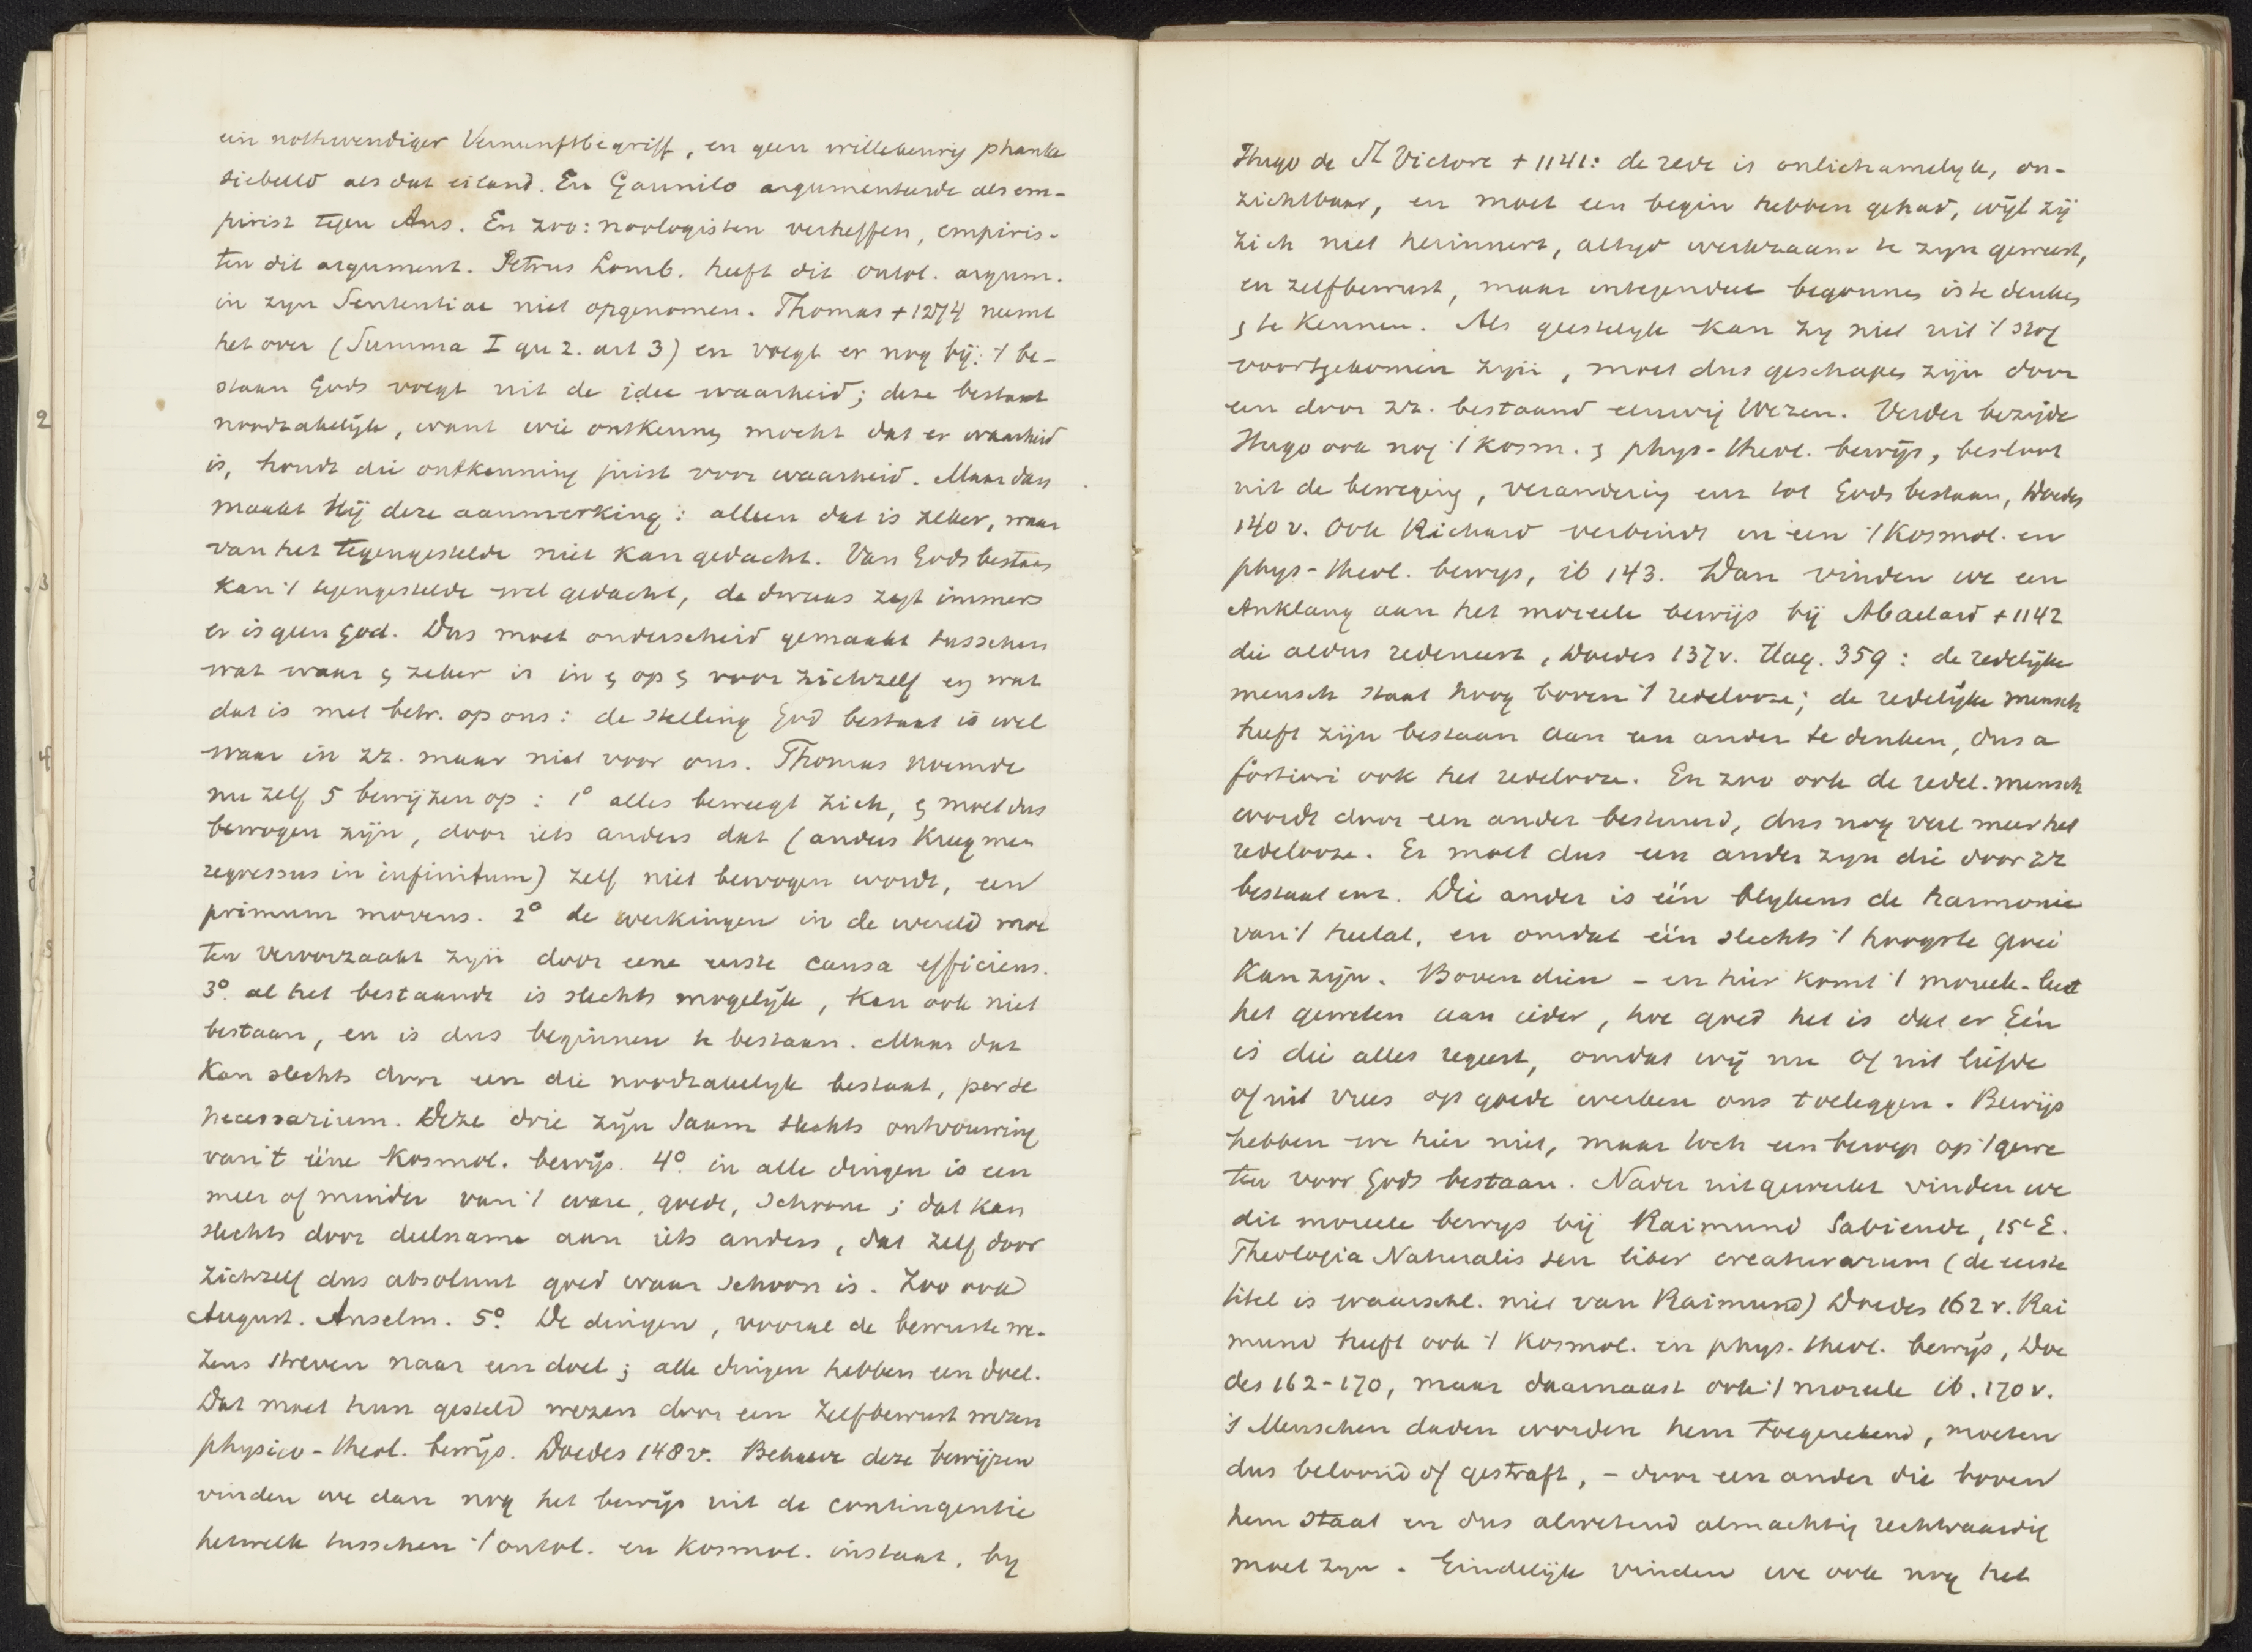 ein nothwendiger Vernunftbegriff, en geen willekeurig phanta
siebeeld als dat eiland. En Gaunilo argumenteerde als em-
pirist tegen Ans. En zoo: noologisten verheffen, empiris-
ten dit argument. Petrus Lomb. heeft dit ontol. argum.
in zyn Sententiae niet opgenomen. Thomas + 1274 neemt
het over (Summa I qu 2. art 3) en voegt er nog bij: 't be-
staan Gods volgt uit de idee waarheid; deze bestaat
noodzakelijk, want wie ontkennen mocht dat er waarheid
is, houdt die ontkenning juist voor waarheid. Maar dan
maakt Hij deze aanmerking: alleen dat is zeker, waar
van het tegengestelde niet kan gedacht. Van Gods bestaan
kan 't tegengestelde wel gedacht, de dwaas zegt immers
er is geen God. Dus moet onderscheid gemaakt tusschen
wat waar & zeker is in & op & voor zichzelf en wat
dat is met betr. op ons: de stelling God bestaat is wel
waar in zz. maar niet voor ons. Thomas noemde
nu zelf 5 bewijzen op: 1° alles beweegt zich, & moet dus
bewogen zijn, door iets anders dat (anders kreeg men
regressus in infinitum) zelf niet bewogen wordt, een
primum movens. 2° de werkingen in de wereld moe
ten veroorzaakt zyn door eene eerste causa efficiens.
3°. al het bestaande is slechts mogelijk, kan ook niet
bestaan, en is dus beginnen te bestaan. Maar dat
kan slechts door een die noodzakelyk bestaat, per se
necessarium. Deze drie zijn saam slechts ontvouwing
van 't ééne kosmol. bewijs. 4°. in alle dingen is een
meer of minder van 't ware, goede, schoone; dat kan
slechts door deelname aan iets anders, dat zelf door
zichzelf dus absoluut goed waar schoon is. Zoo ook
August. Anselm. 5°. De dingen, vooral de bewuste we-
zens streven naar een doel; alle dingen hebben een doel.
Dat moet hun gesteld wezen door een zelfbewust wezen
physico-theol. bewijs. Doedes 148v. Behalve deze bewijzen
vinden we dan nog het bewijs uit de contingentie
hetwelk tusschen 't ontol. en kosmol. instaat, by
Hugo de St Victore + 1141: de rede is onlichamelyk, on-
zichtbaar, en moet een begin hebben gehad, wijl zij
zich niet herinnert, altyd werkzaam te zyn geweest,
en zelfbewust, maar integendeel begonnen is te denken
& te kennen. Als geestelyk kan zy niet uit 't stof
voortgekomen zyn, moet dus geschapen zijn door
een door zz. bestaand eeuwig Wezen. Verder bezigde
Hugo ook nog 't kosm. & phys-theol. bewijs, besloot
uit de beweging, verandering enz tot Gods bestaan, Doedes
140 v. Ook Richard verbindt in een 't kosmol. en
phys-theol. bewys, ib 143. Dan vinden we een
Anklang aan het moreele bewijs bij Abaelard + 1142
die aldus redeneert, Doedes 137v. Hag. 359: de redelijke
mensch staat hoog boven 't redelooze; de redelijke mensch
heeft zijn bestaan aan een ander te danken, dus a
fortiori ook het redelooze. En zoo ook de redel. mensch
wordt door een ander bestuurd, dus nog veel meer het
redelooze. Er moet dus een ander zyn die door zz
bestaat enz. Die ander is één blykens de harmonie
van 't heelal, en omdat één slechts 't hoogste goed
kan zijn. Bovendien - en hier komt 't moreele - leert
het geweten aan ieder, hoe goed het is dat er Eén
is die alles regeert, omdat wij nu of uit liefde
of uit vrees op goede werken ons toeleggen. Bewijs
hebben we hier niet, maar toch een beroep op 't gewe
ten voor Gods bestaan. Nader uitgewerkt vinden we
dit moreele bewys bij Raimund Sabiende, 15e E.
Theologia Naturalis seu liber creaturarum (de eerste
titel is waarschl. niet van Raimund) Doedes 162 v. Rai
mund heeft ook 't kosmol. en phys.-theol. bewijs, Doe
des 162-170, maar daarnaast ook 't moreele ib. 170 v.
's Menschen daden worden hem toegerekend, moeten
dus beloond of gestraft, - door een ander die boven
hem staat en dus alwetend almachtig rechtvaardig
moet zyn. Eindelijk vinden we ook nog het